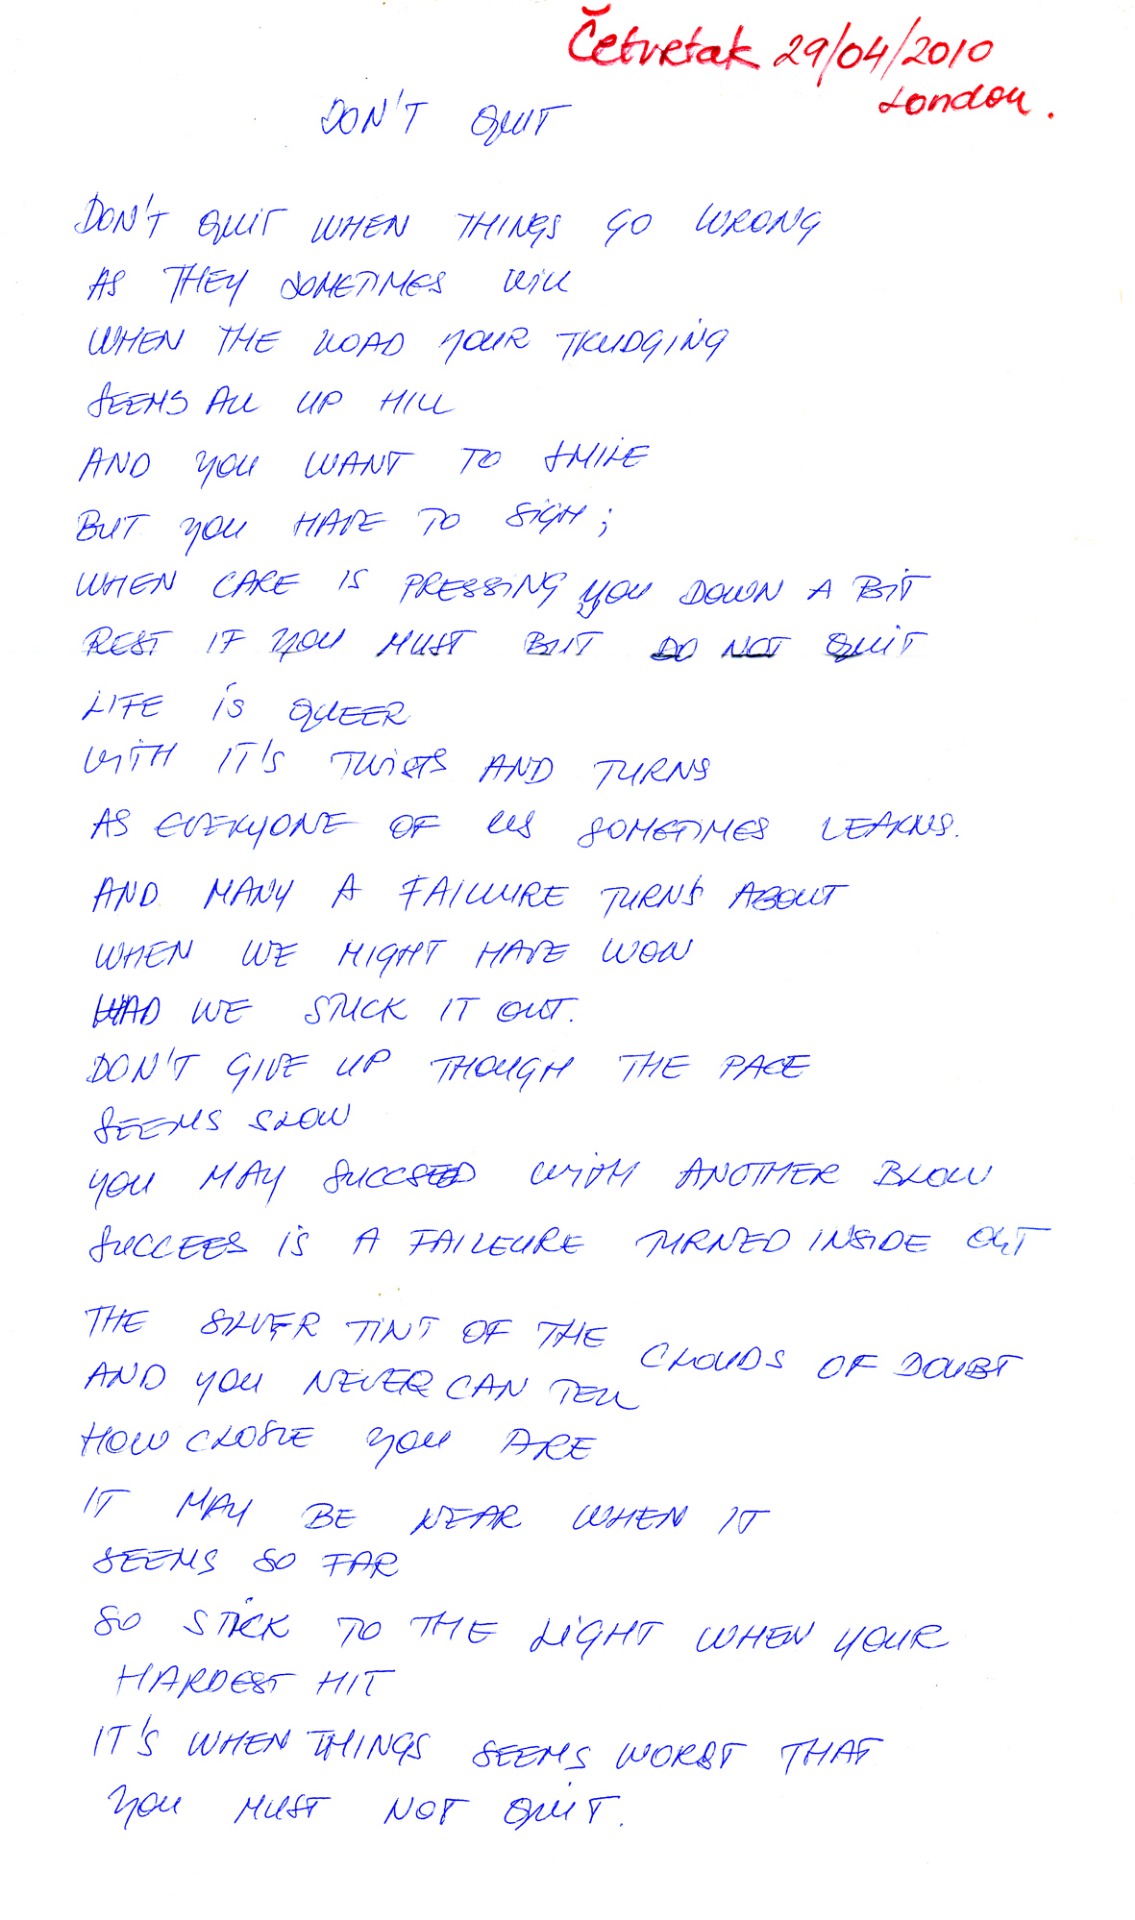 Četvrtak 29/04/2010
London.
DON'T QUIT
DON'T QUIT WHEN THINGS GO WRONG
AS THEY SOMETIMES WILL
WHEN THE ROAD YOUR TRUDGING
SEEMS ALL UP HILL
AND YOU WANT TO SMILE
BUT YOU HAVE TO SIGH;
WHEN CARE IS PRESSING YOU DOWN A BIT
REST IF YOU MUST BUT DO NOT QUIT
LIFE IS QUEER
WITH IT'S TWISTS AND TURNS
AS EVERYONE OF US SOMETIMES LEARNS.
AND MANY A FAILURE TURNS ABOUT
WHEN WE MIGHT HAVE WON
HAD WE STUCK IT OUT.
DON'T GIVE UP THOUGH THE PACE
SEEMS SLOW
YOU MAY SUCCSEED WITH ANOTHER BLOW
SUCCEES IS A FAILEURE TURNED INSIDE OUT
THE SILVER TINT OF THE CLOUDS OF DOUBT
AND YOU NEVER CAN TELL
HOW CLOSE YOU ARE
IT MAY BE NEAR WHEN IT
SEEMS SO FAR
SO STICK TO THE LIGHT WHEN YOUR
HARDEST HIT
IT'S WHEN THINGS SEEMS WORST THAT
YOU MUST NOT QUIT.